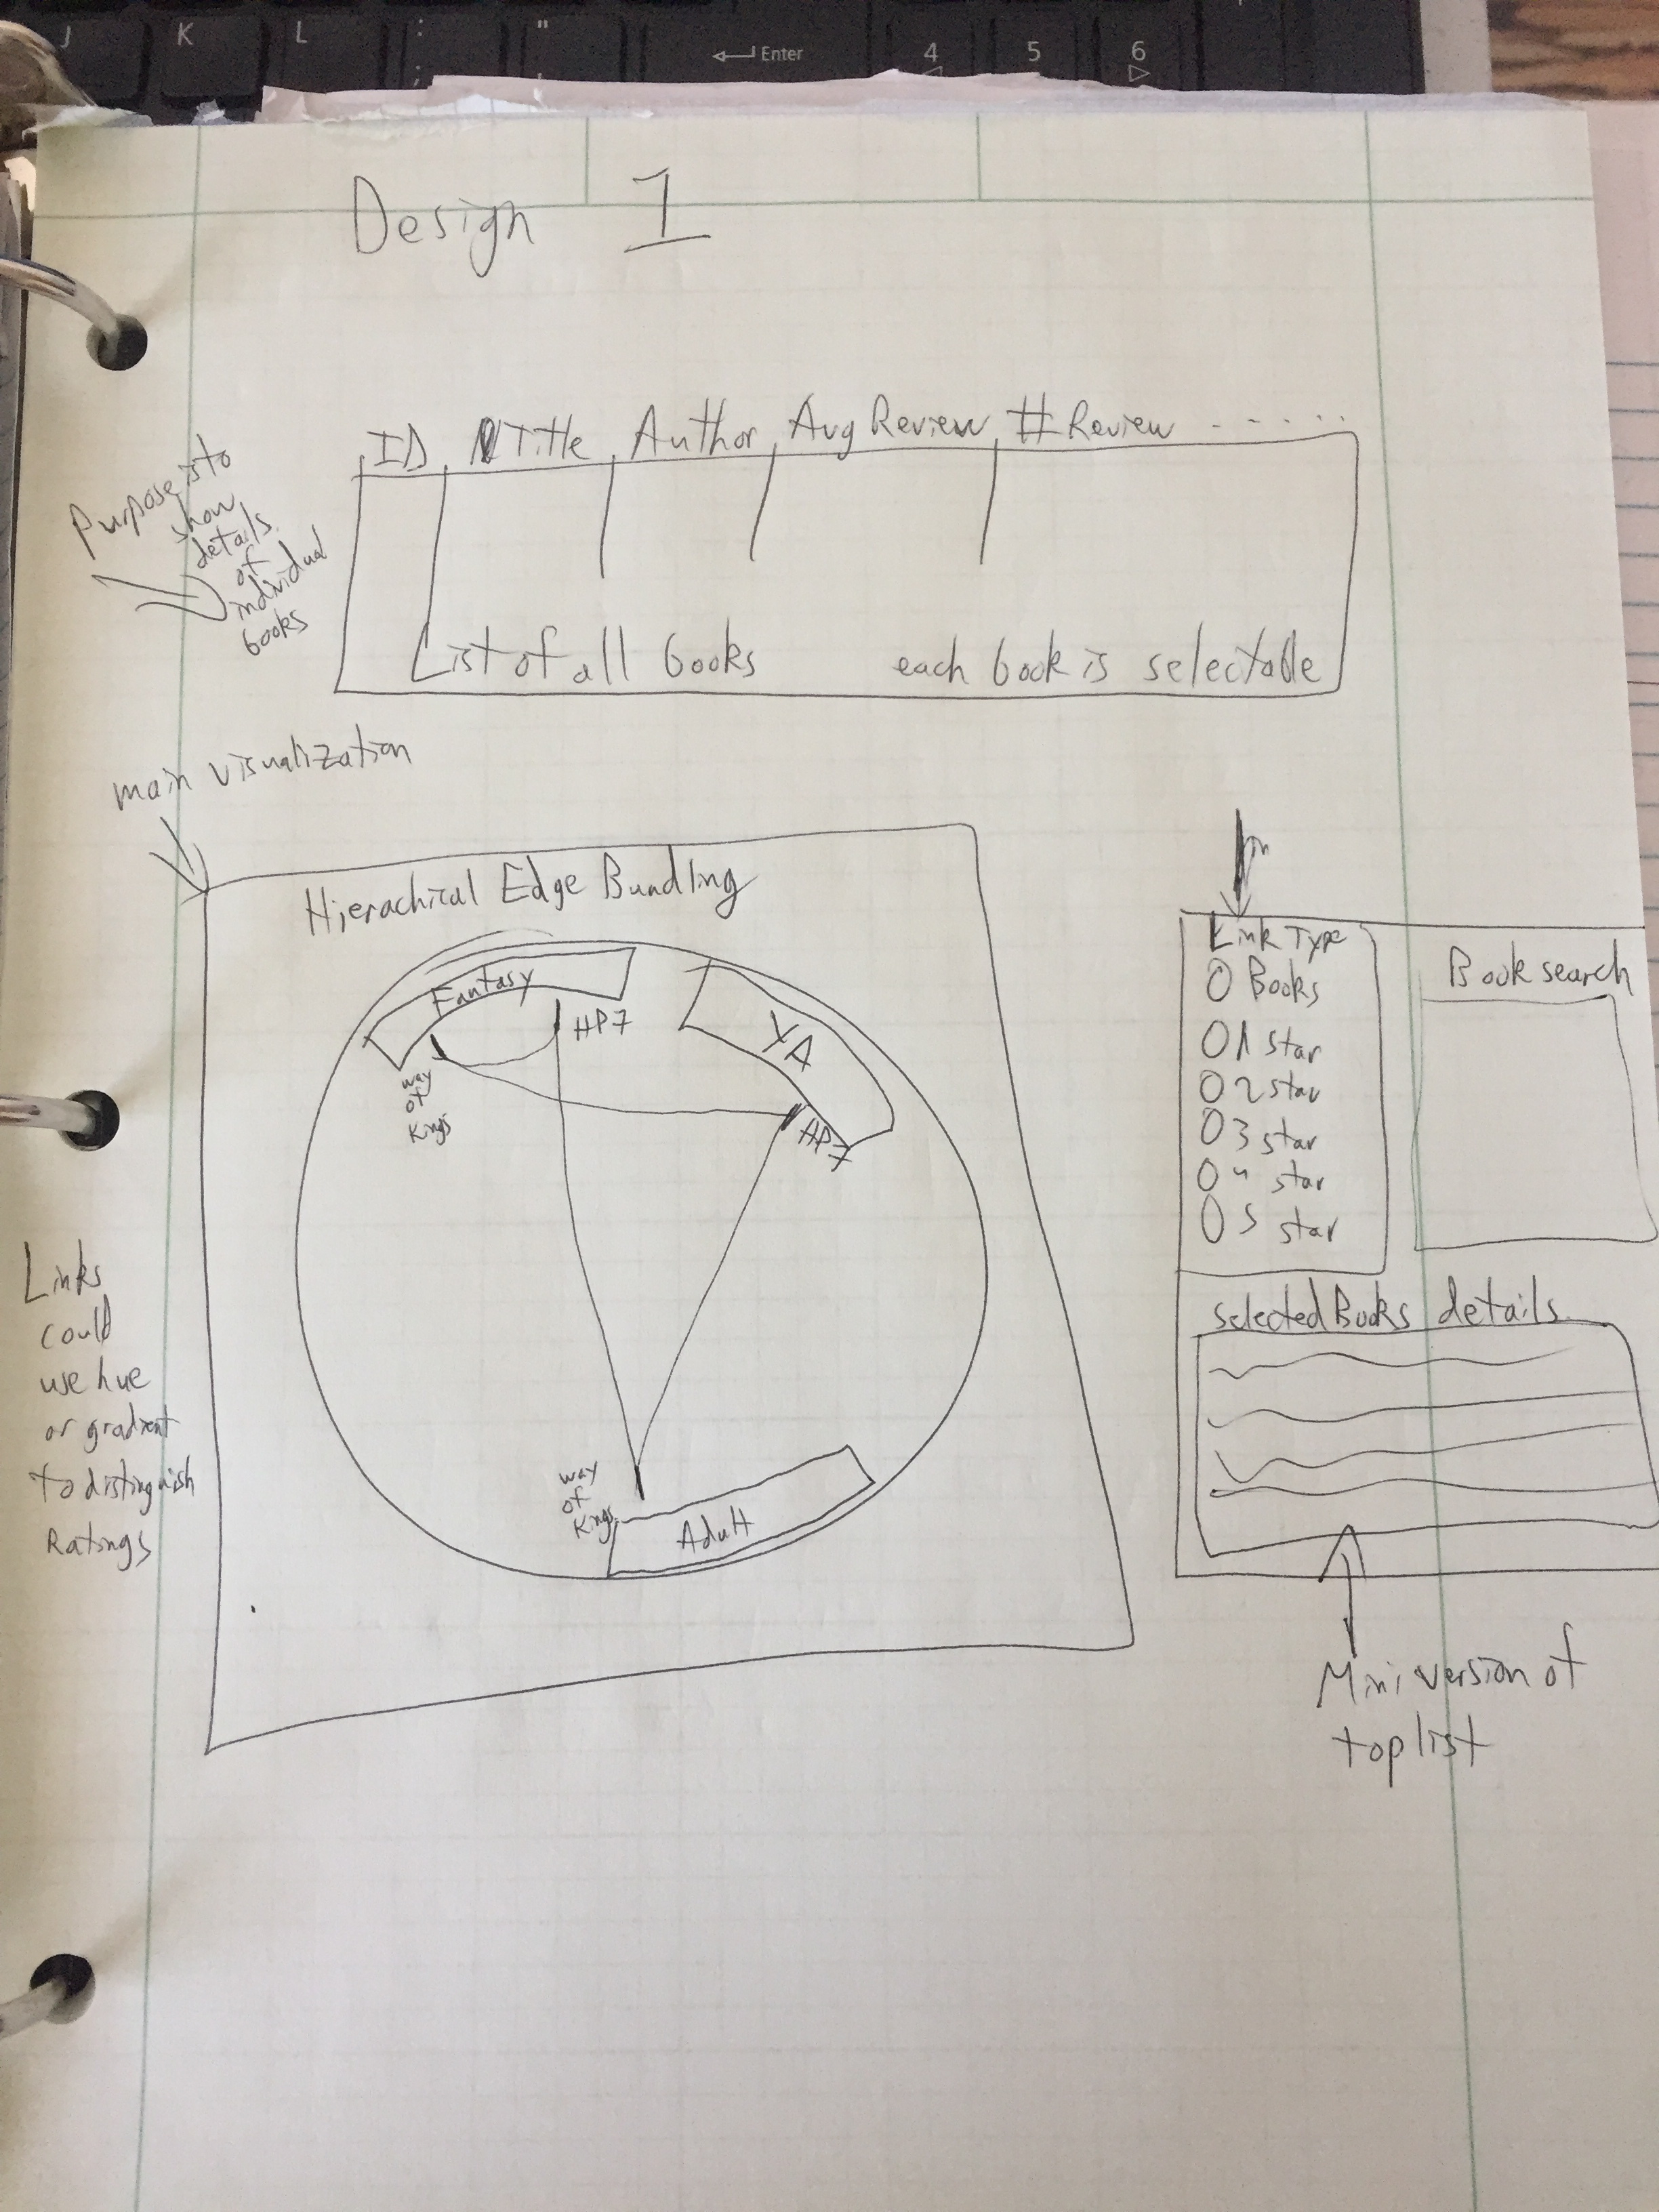 J K L : ; " ' Enter 4 5 6
Design 1
ID Title Author Avg Review # Review ......
Purpose is to
show
details
of
individual
books
List of all books each book is selectable
main visualization
Hierachical Edge Bundling
Fantasy
HP7
YA
way
of
Kings
HP7
way
of
Kings
Adult
Links
could
use hue
or gradient
to distinguish
Ratings
Link Type
Books
1 star
2 star
3 star
4 star
5 star
Book search
selected Books details
Mini version of
top list